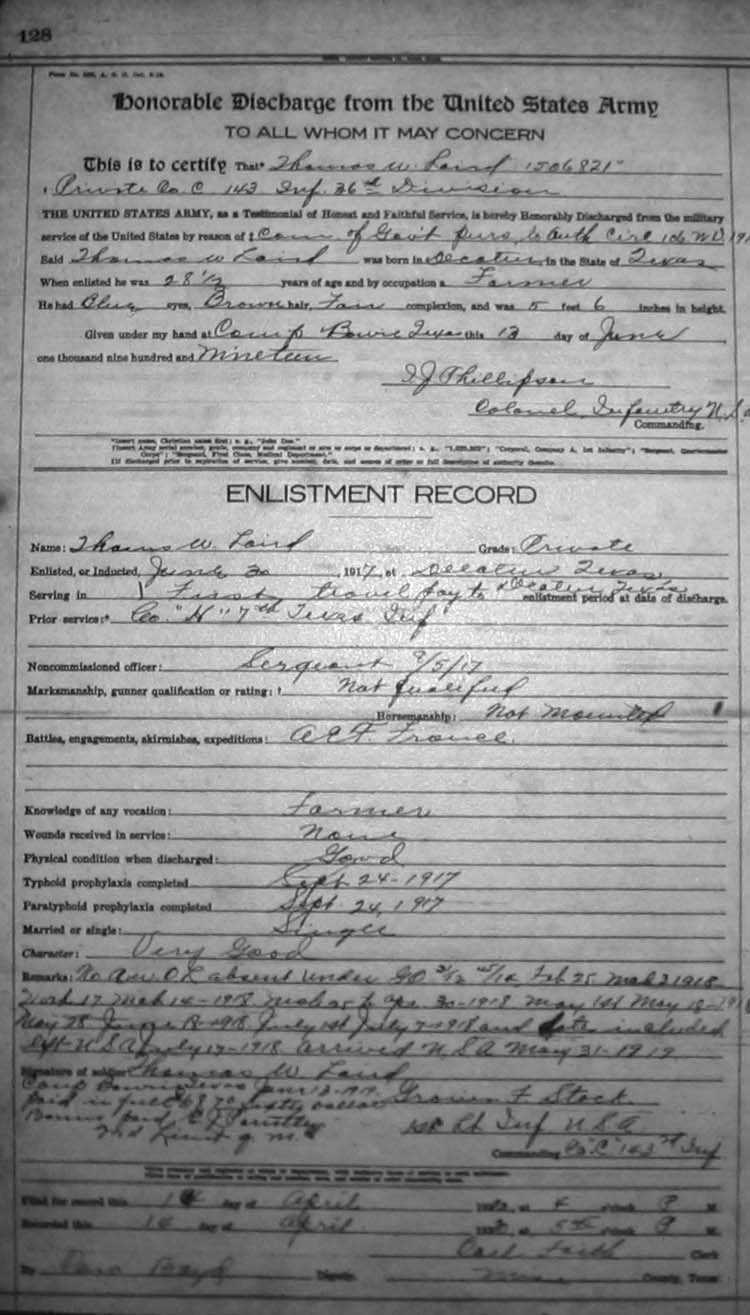 128
Honorable Discharge from the United States Army
TO ALL WHOM IT MAY CONCERN
This is to certify That* Thomas W. Laird 1506821
Private Co. C 143 Inf. 36th Division
THE UNITED STATES ARMY, as a Testimonial of Honest and Faithful Service, is hereby Honorably Discharged from the military
service of the United States by reason of ‡ Con of Govt purs to Auth Circ 106 WD 191
Said Thomas W Laird was born in Decatur, in the State of Texas
When enlisted he was 28 1/2 years of age and by occupation a Farmer
He had Blue eyes, Brown hair, Fair complexion, and was 5 feet 6 inches in height.
Given under my hand at Camp Bowie Texas this 13 day of June
one thousand nine hundred and Nineteen
I J Phillipson
Colonel, Infantry U.S.A
Commanding.
ENLISTMENT RECORD
Name: Thomas W. Laird Grade: Private
Enlisted, or Inducted, June 30, 1917, at Decatur Texas
Serving in First travel pay to Decatur Texas enlistment period at date of discharge.
Prior service:* Co. "H" 7th Texas Inf
Noncommissioned officer: Sergeant 9/5/17
Marksmanship, gunner qualification or rating: † Not qualified
Horsemanship: Not Mounted
Battles, engagements, skirmishes, expeditions: A E F. France.
Knowledge of any vocation: Farmer
Wounds received in service: None
Physical condition when discharged: Good
Typhoid prophylaxis completed Sept 24-1917
Paratyphoid prophylaxis completed Sept. 24, 1917
Married or single: Single
Character: Very Good
Remarks: No A.W.O.L absent under GO 31/12 45/14 Feb 25 Mch 2 1918
17 Mch 14-1918 Mch 25 to Apr 30-1918 May 1st May 18-191
May 28 June 18-1918 July 1st July 7-1918 and dates included
left U S A July 17-1918 arrived U.S.A May 31-1919
Signature of soldier: Thomas W Laird
Camp Bowie Texas June 13-1919
Paid in full 68 70 sixty dollar Grover F Stock
Bonus paid
2nd Lieut Q. M. C 1st Lt Inf U S A
Commanding Co "C" 143rd Inf
Filed for record this 14 day of April at 4 o'clock P M.
Recorded this 14 day of April at o'clock P M.
Carl Faith Clerk
By Deputy County, Texas